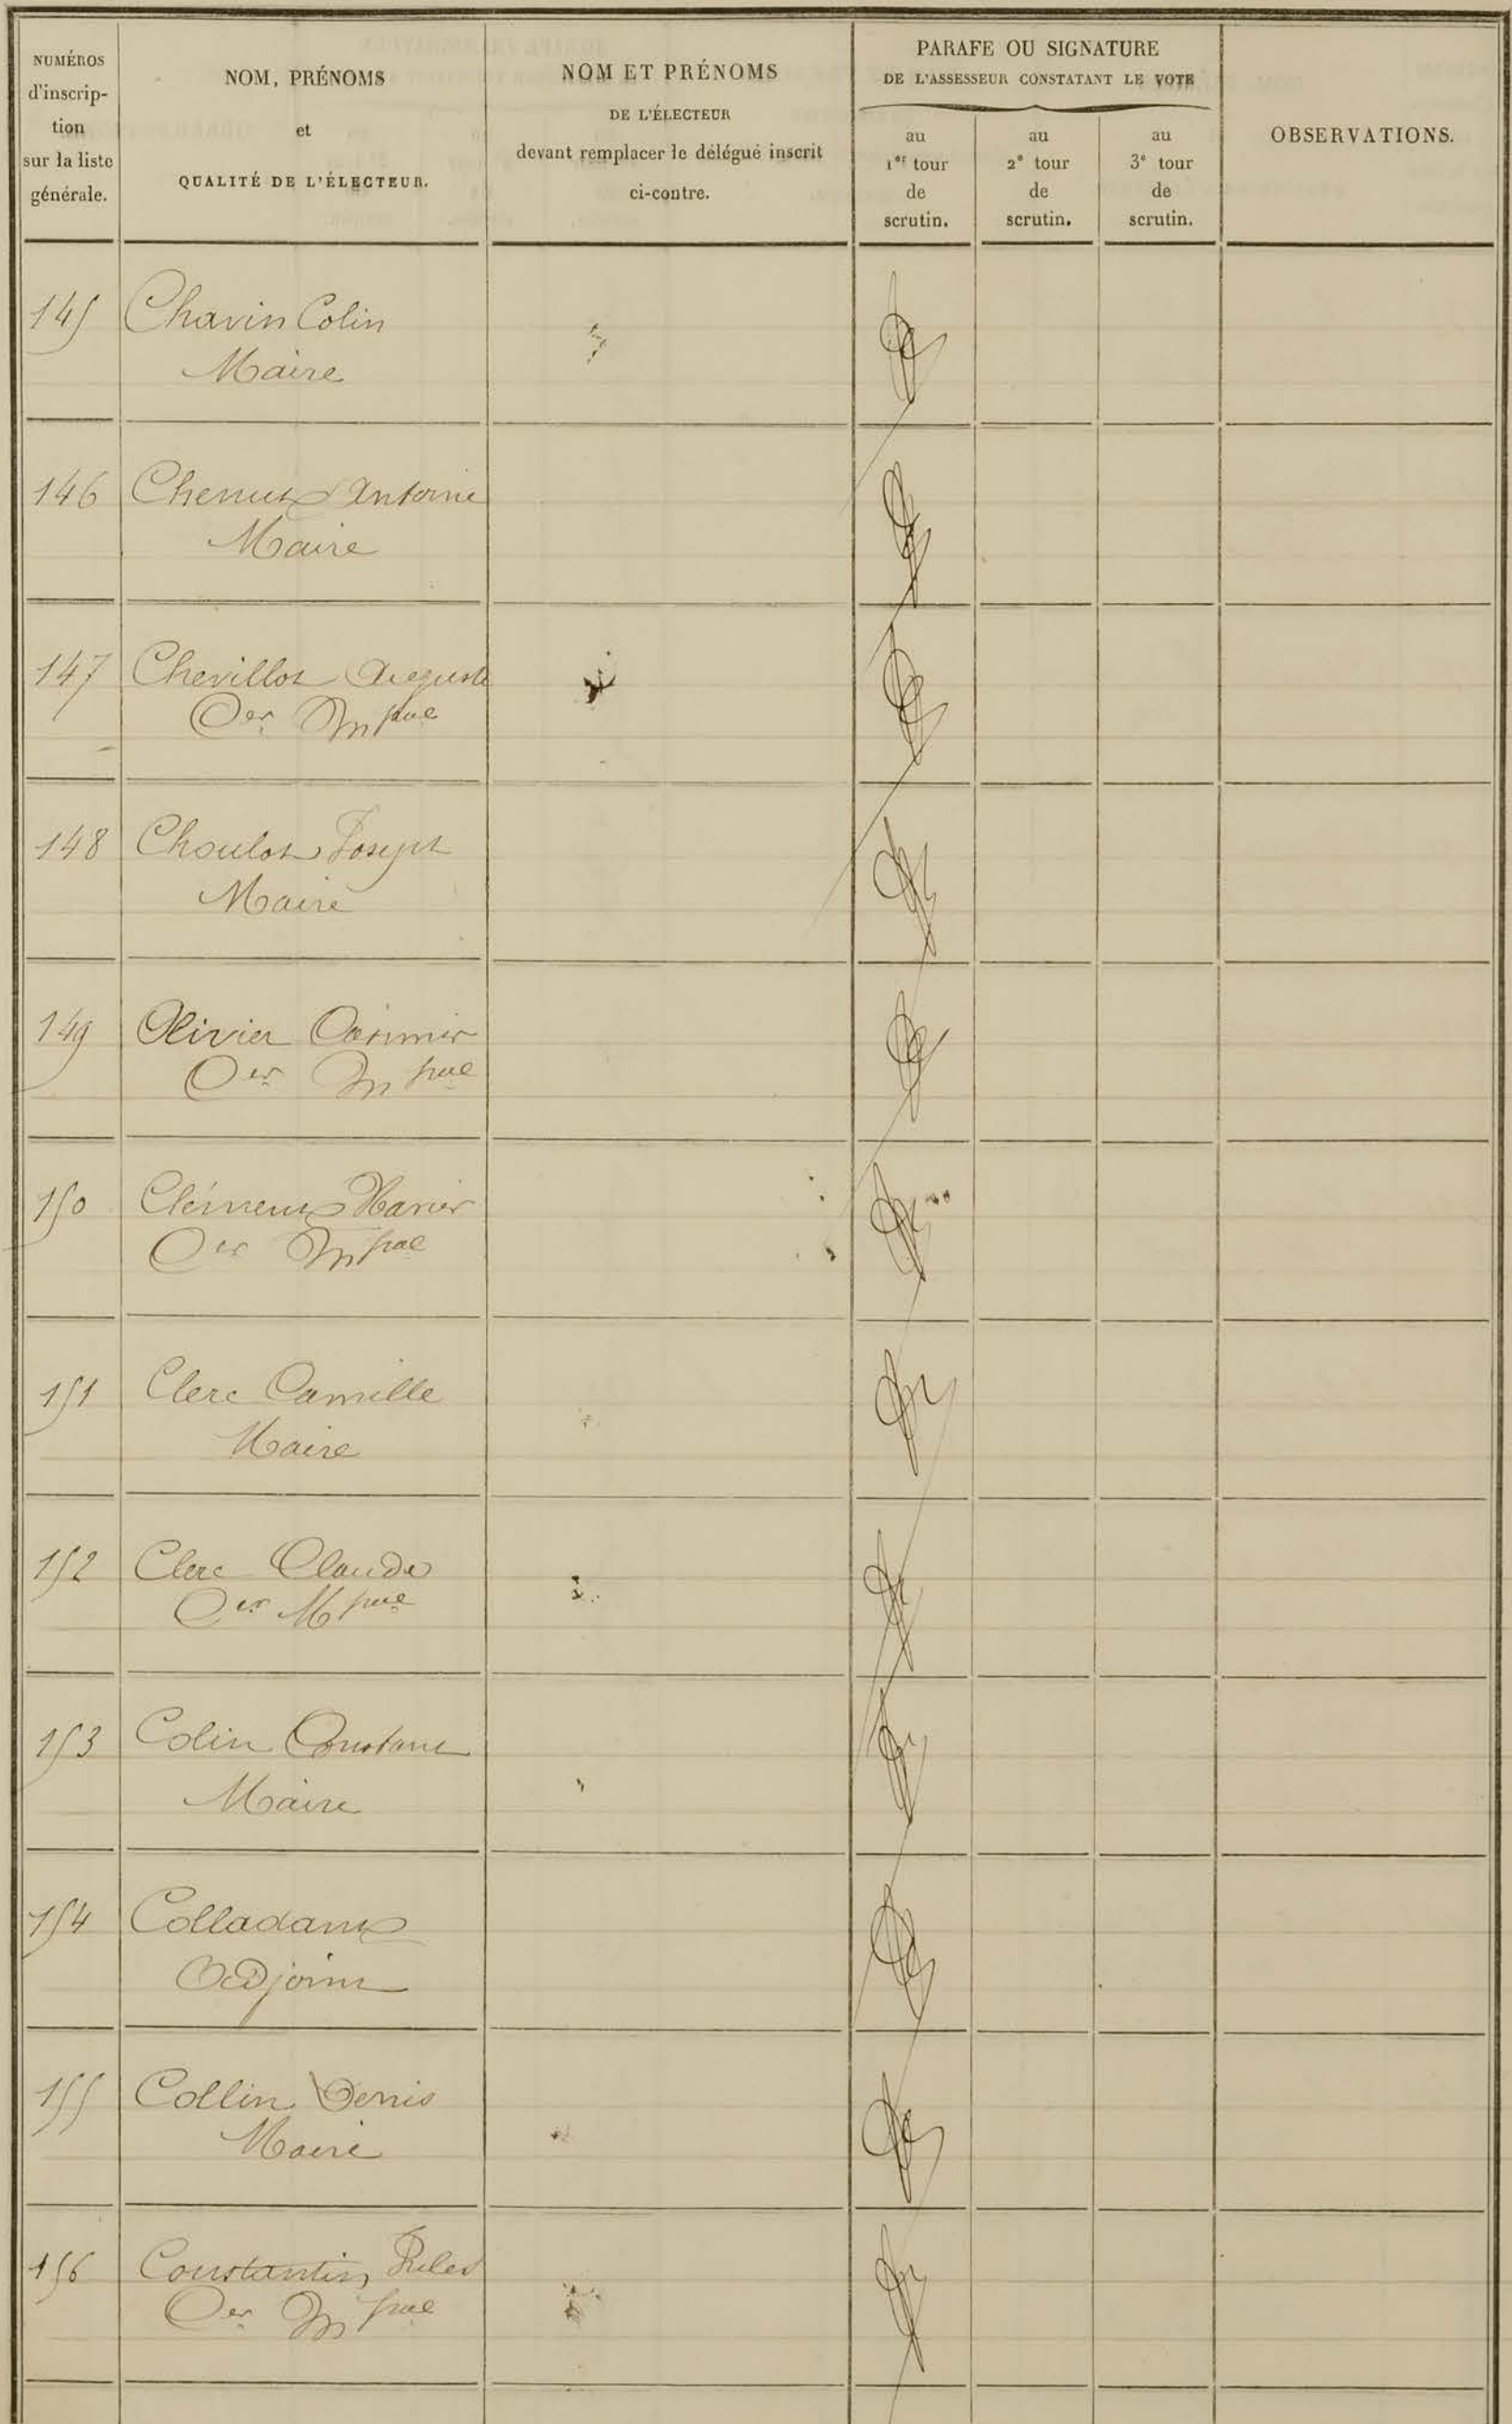 NUMÉROS
d'inscrip-
tion
sur la liste
générale.
NOM, PRÉNOMS
et
QUALITÉ DE L'ÉLECTEUR.
NOM ET PRÉNOMS
DE L'ÉLECTEUR
devant remplacer le délégué inscrit
ci-contre.
PARAFE OU SIGNATURE
DE L'ASSESSEUR CONSTATANT LE VOTE
au
1er tour
de
scrutin.
au
2e tour
de
scrutin.
au
3e tour
de
scrutin.
OBSERVATIONS.
145 Chavin Colin
Maire
146 Antoine
Maire
147 Chevillot Auguste
Cer Mpal
148 Choulot Joseph
Maire
149 Olivier Casimir
Cer Mpal
150 Clément Xavier
Cer Mpal
151 Clerc Camille
Maire
152 Clerc Claude
Cer Mpal
153 Colin Constant
Maire
154 Colladant
Adjoint
155 Collin Denis
Maire
156 Constantin Jules
Cer Mpal